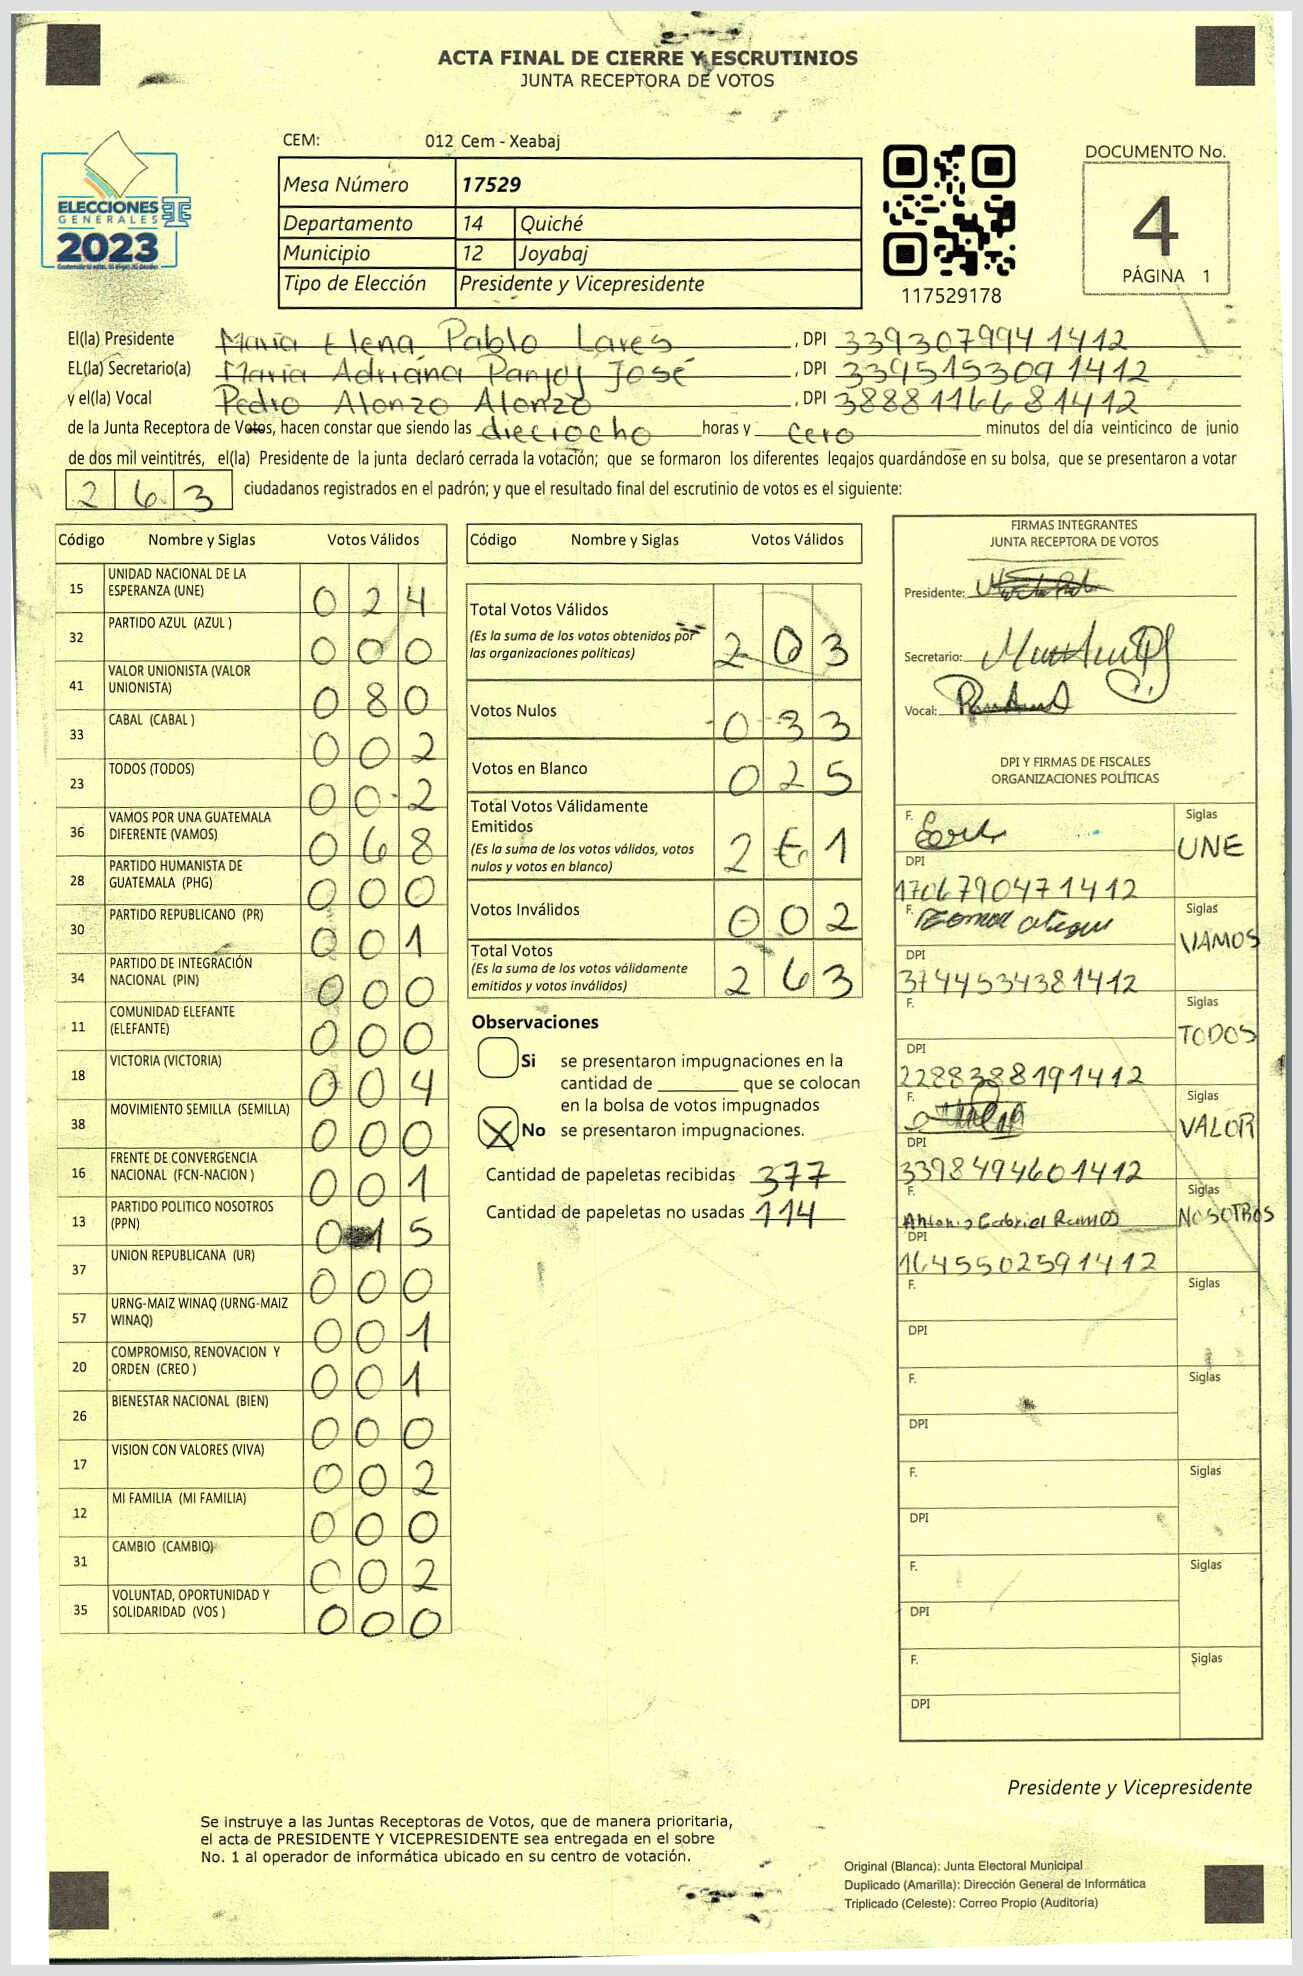 ACTA FINAL DE CIERRE Y ESCRUTINIOS
JUNTA RECEPTORA DE VOTOS
CEM: 012 Cem - Xeabaj
ELECCIONES
GENERALES
2023
Mesa Número 17529
Departamento 14 Quiché
Municipio 12 Joyabaj
Tipo de Elección Presidente y Vicepresidente
117529178
DOCUMENTO No.
4
PÁGINA 1
El(la) Presidente María Elena Pablo Lares, DPI 3393079941412
EL(la) Secretario(a) María Adriana Panjoj José, DPI 3395153091412
y el(la) Vocal Pedro Alonzo Alonzo, DPI 3888116681412
de la Junta Receptora de Votos, hacen constar que siendo las dieciocho horas y cero minutos del día veinticinco de junio
de dos mil veintitrés, el(la) Presidente de la junta declaró cerrada la votación; que se formaron los diferentes legajos guardándose en su bolsa, que se presentaron a votar
263 ciudadanos registrados en el padrón; y que el resultado final del escrutinio de votos es el siguiente:
Código Nombre y Siglas Votos Válidos
15 UNIDAD NACIONAL DE LA ESPERANZA (UNE) 024
32 PARTIDO AZUL (AZUL ) 000
41 VALOR UNIONISTA (VALOR UNIONISTA) 080
33 CABAL (CABAL ) 002
23 TODOS (TODOS) 002
36 VAMOS POR UNA GUATEMALA DIFERENTE (VAMOS) 068
28 PARTIDO HUMANISTA DE GUATEMALA (PHG) 000
30 PARTIDO REPUBLICANO (PR) 001
34 PARTIDO DE INTEGRACIÓN NACIONAL (PIN) 000
11 COMUNIDAD ELEFANTE (ELEFANTE) 000
18 VICTORIA (VICTORIA) 004
38 MOVIMIENTO SEMILLA (SEMILLA) 000
16 FRENTE DE CONVERGENCIA NACIONAL (FCN-NACION ) 001
13 PARTIDO POLITICO NOSOTROS (PPN) 015
37 UNION REPUBLICANA (UR) 000
57 URNG-MAIZ WINAQ (URNG-MAIZ WINAQ) 001
20 COMPROMISO, RENOVACION Y ORDEN (CREO ) 001
26 BIENESTAR NACIONAL (BIEN) 000
17 VISION CON VALORES (VIVA) 002
12 MI FAMILIA (MI FAMILIA) 000
31 CAMBIO (CAMBIO) 002
35 VOLUNTAD, OPORTUNIDAD Y SOLIDARIDAD (VOS ) 000
Código Nombre y Siglas Votos Válidos
Total Votos Válidos 203
(Es la suma de los votos obtenidos por
las organizaciones políticas)
Votos Nulos 033
Votos en Blanco 025
Total Votos Válidamente
Emitidos 261
(Es la suma de los votos válidos, votos
nulos y votos en blanco)
Votos Inválidos 002
Total Votos 263
(Es la suma de los votos válidamente
emitidos y votos inválidos)
Observaciones
Si se presentaron impugnaciones en la
cantidad de ________ que se colocan
en la bolsa de votos impugnados
X No se presentaron impugnaciones.
Cantidad de papeletas recibidas 377
Cantidad de papeletas no usadas 114
FIRMAS INTEGRANTES
JUNTA RECEPTORA DE VOTOS
Presidente:
Secretario:
Vocal:
DPI Y FIRMAS DE FISCALES
ORGANIZACIONES POLÍTICAS
F. Siglas
UNE
DPI
1706790471412
F. Siglas
VAMOS
DPI
3744534381412
F. Siglas
TODOS
DPI
2288388191412
F. Siglas
VALOR
DPI
3398494601412
F. Siglas
Antonio Gabriel Ramos NOSOTROS
DPI
1645502591412
F. Siglas
DPI
F. Siglas
DPI
F. Siglas
DPI
F. Siglas
DPI
F. Siglas
DPI
Presidente y Vicepresidente
Se instruye a las Juntas Receptoras de Votos, que de manera prioritaria,
el acta de PRESIDENTE Y VICEPRESIDENTE sea entregada en el sobre
No. 1 al operador de informática ubicado en su centro de votación.
Original (Blanca): Junta Electoral Municipal
Duplicado (Amarilla): Dirección General de Informática
Triplicado (Celeste): Correo Propio (Auditoría)